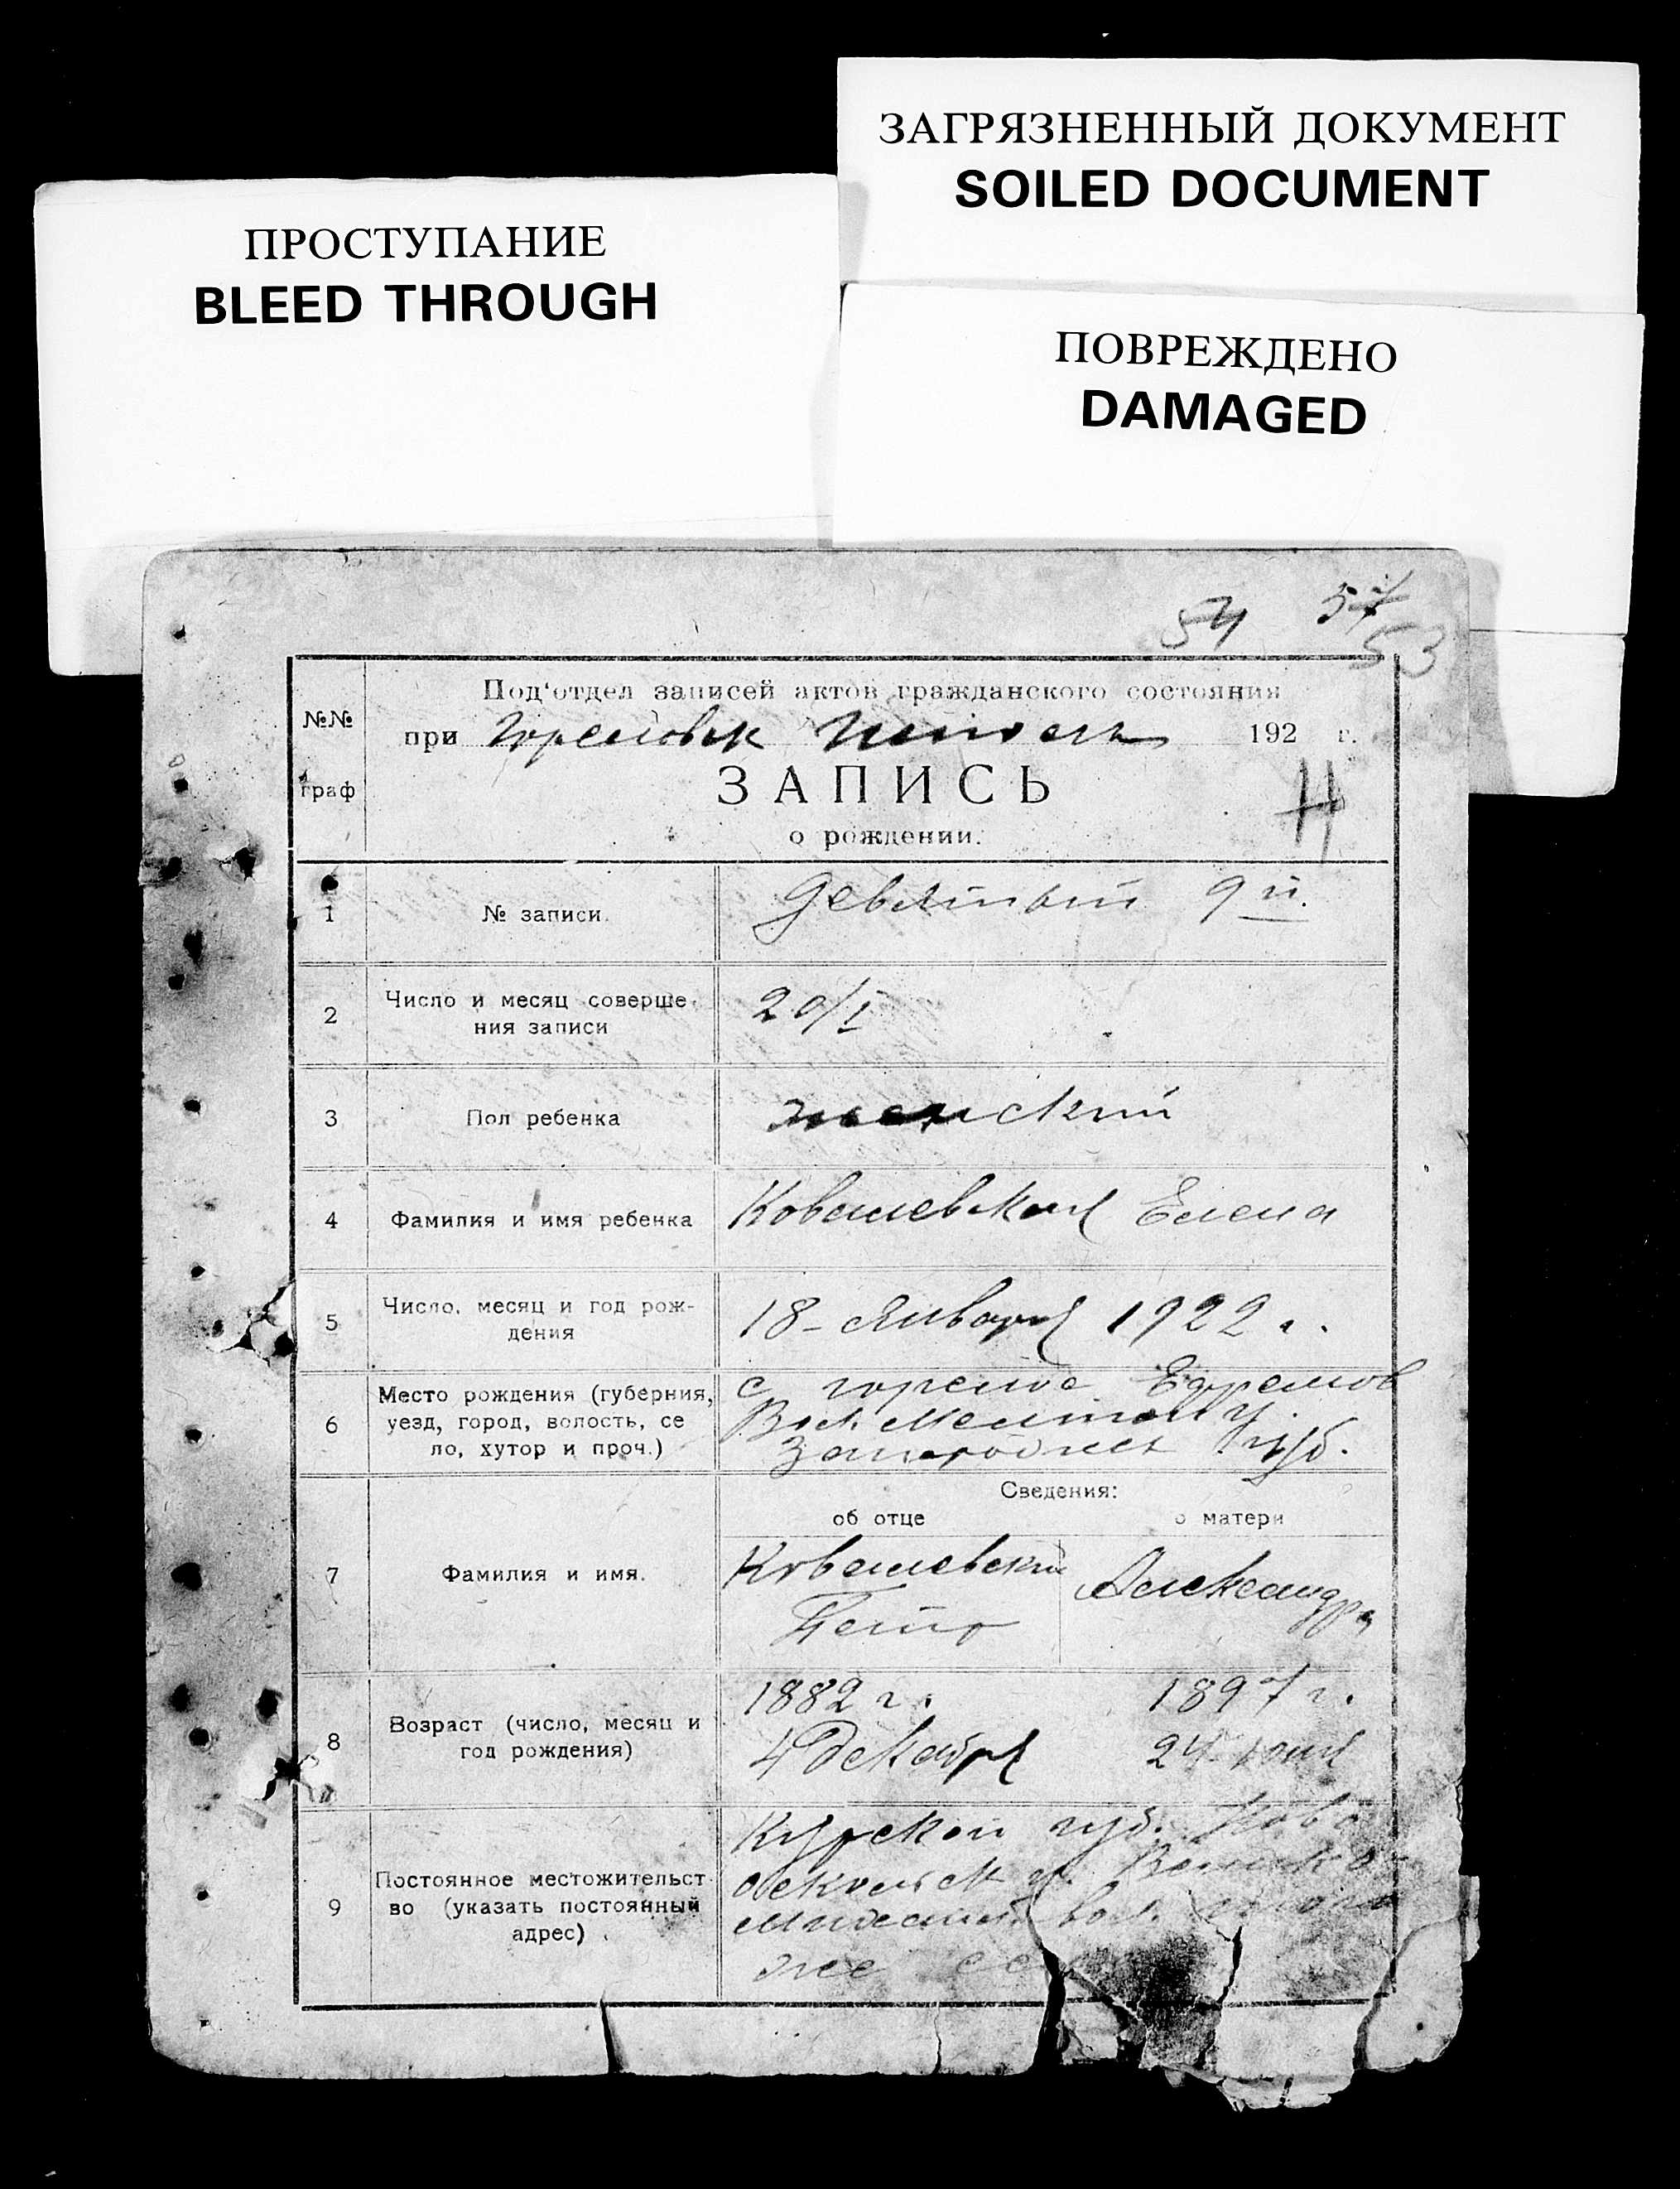 ЗАГРЯЗНЕННЫЙ ДОКУМЕНТ
SOILED DOCUMENT
ПРОСТУПАНИЕ
BLEED THROUGH
ПОВРЕЖДЕНО
DAMAGED
54 57
53
№№
граф
Под‘отдел записей актов гражданского состояния
при 192 г.
ЗАПИСЬ
о рождении.
1 № записи. Девятый 9й.
2 Число и месяц соверше-
ния записи
20/I
3 Пол ребенка женский
4 Фамилия и имя ребенка Ковалевская Елена
5 Число, месяц и год рож-
дения
18 - Января 1922 г.
6 Место рождения (губерния,
уезд, город, волость, се
ло, хутор и проч.)
с Ефремов
Вол. у.
губ.
Сведения:
об отце о матери
7 Фамилия и имя. Ковалевский
Петр
Александра
8 Возраст (число, месяц и
год рождения)
1882 г. 1897 г.
4 Декабря 24
9 Постоянное местожительст
во (указать постоянный
адрес)
Курской губ. Ново
оскольск у.
вол.
же